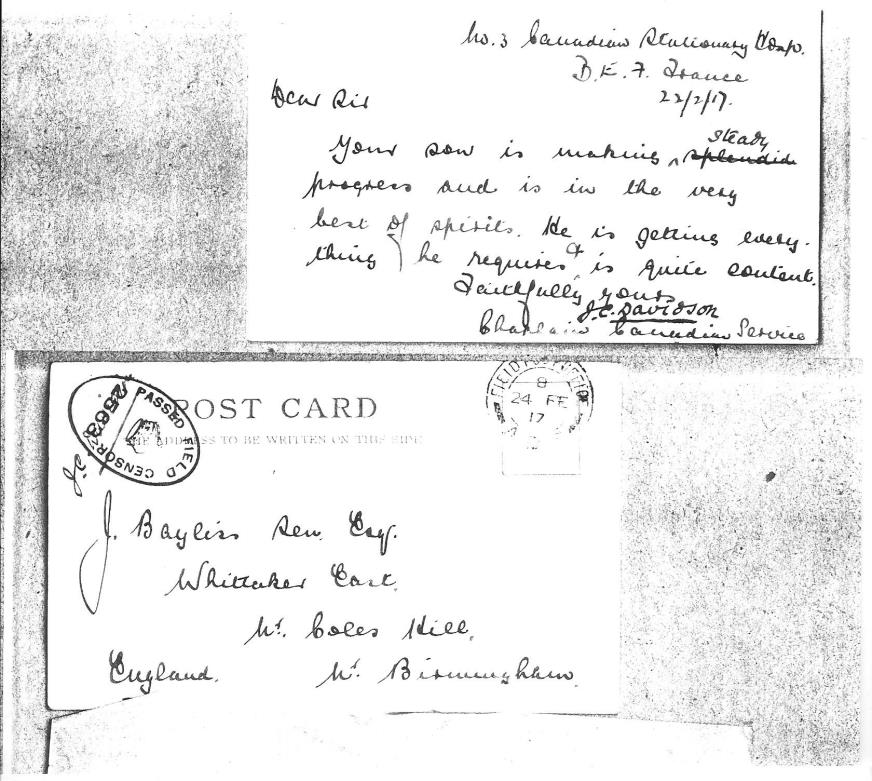 No. 3 Canadian Stationary Hosp.
B.E.F. France
22/2/17.
Dear Sir
steady
Your son is making ^ splendid
progress and is in the very
best of spirits. He is getting every-
thing he requires & is quite content.
Faithfully yours
J.C. DAVIDSON
Chaplain Canadian Service
PASSED FIELD CENSOR
2563
POST CARD
THE ADDRESS TO BE WRITTEN ON THIS SIDE
FIELD
8
24 FE
17
J. Bayliss Sen. Esq.
Whittaker East.
Nr. Coles Hill.
England. Nr. Birmingham.